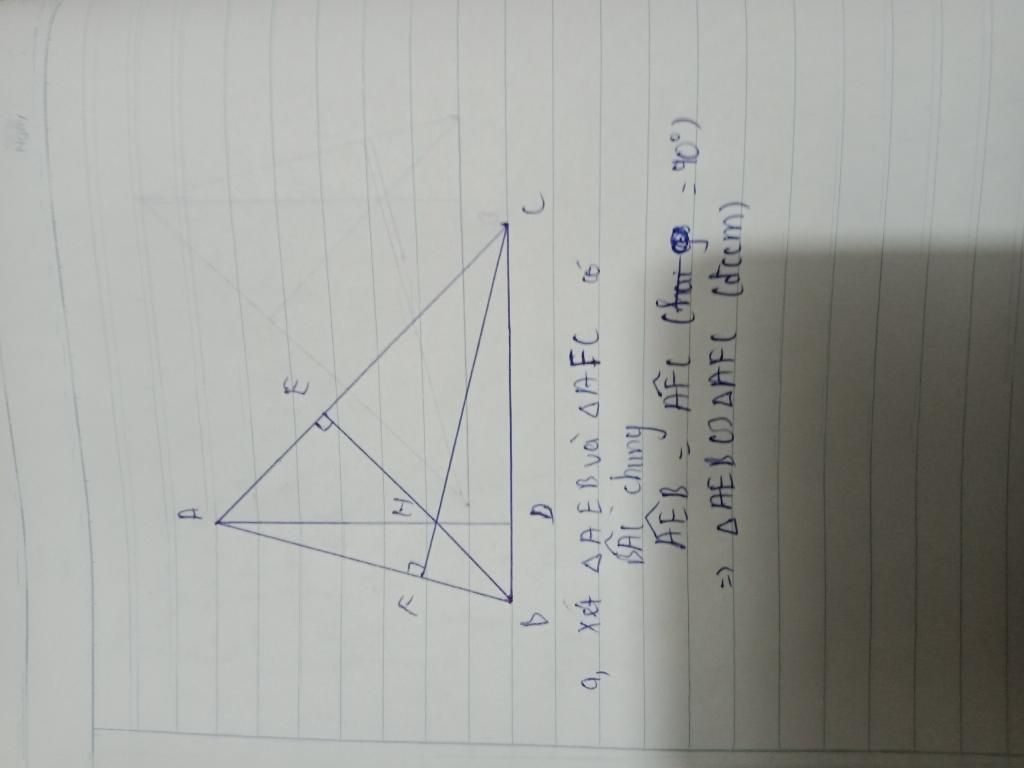 A
E
F
H
B
D
C
a, xét △AEB và △AFC có
B̂AC chung
ÂEB = ÂFC ( = 90°)
=> △AEB ∽ △AFC (đccm)